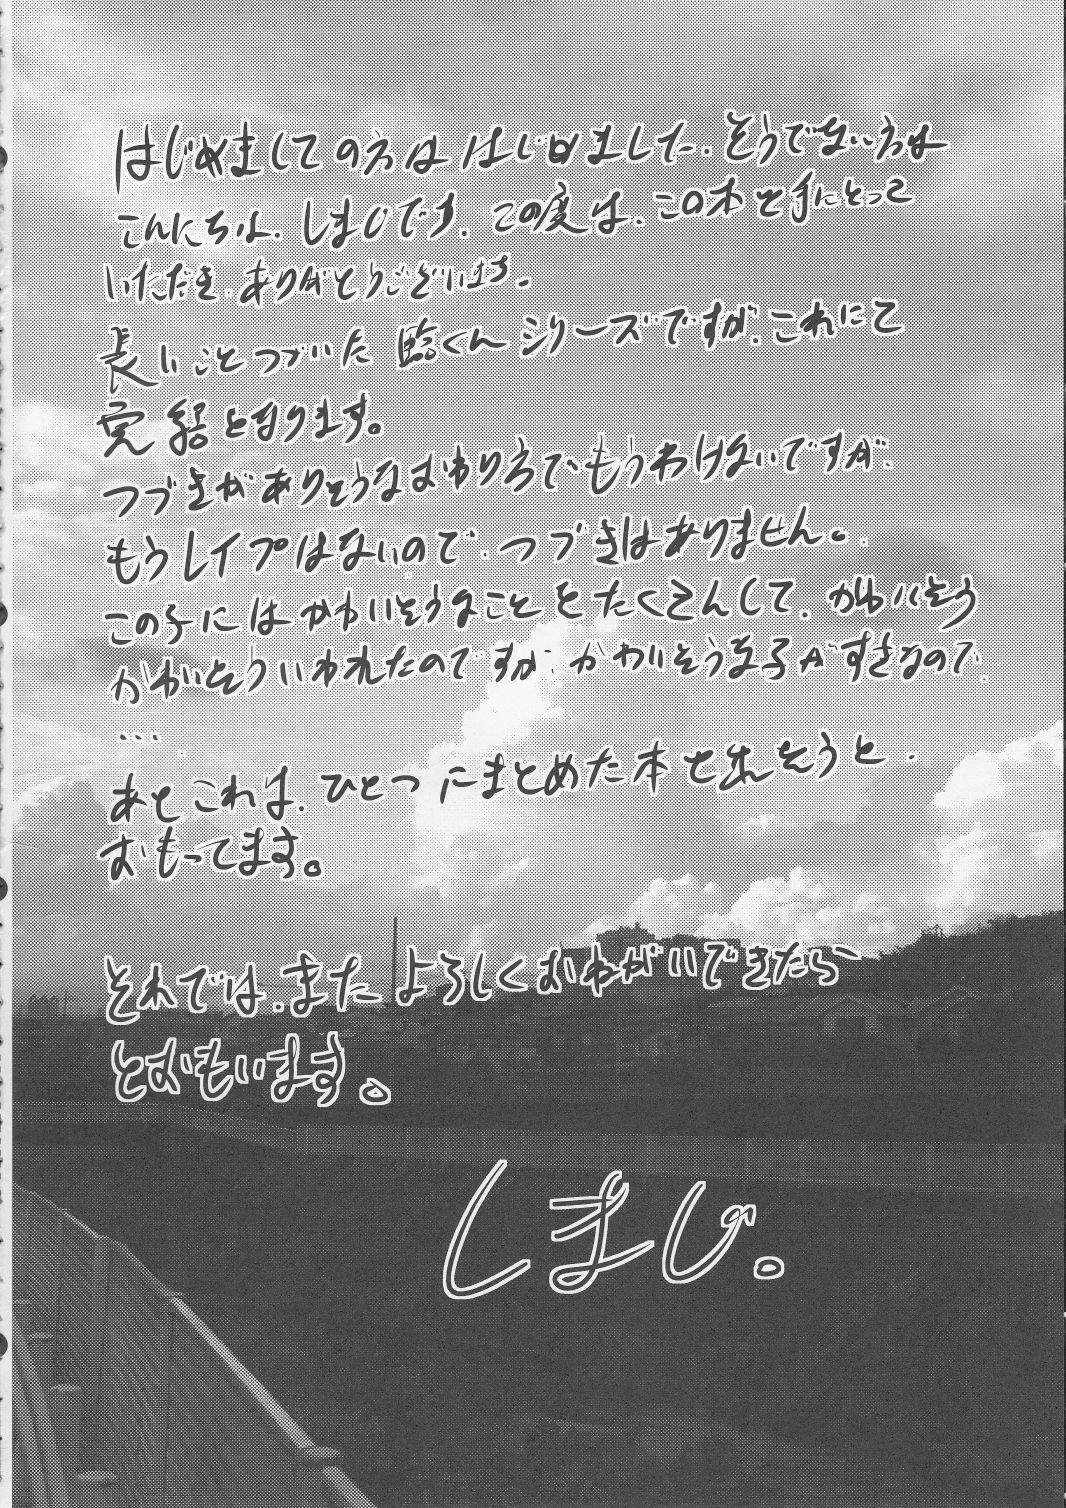 はじめましての方ははじめました。そうでない方は
こんにちは。しまじです。この度は、この本を手にとって
いただき、ありがとうございます。
長いことつづいた臨くんシリーズですが、これにて
完結となります。
つづきがありそうなおわり方でもうわけないですが、
もうレイプはないので、つづきはありません。
この子にはかわいそうなことをたくさんして、かわいそう
かわいそういわれたのですが、かわいそうな子がすきなので、
…
あとこれは、ひとつにまとめた本を出そうと
おもってます。
それでは、またよろしくおねがいできたら
とおもいます。
しまじ。